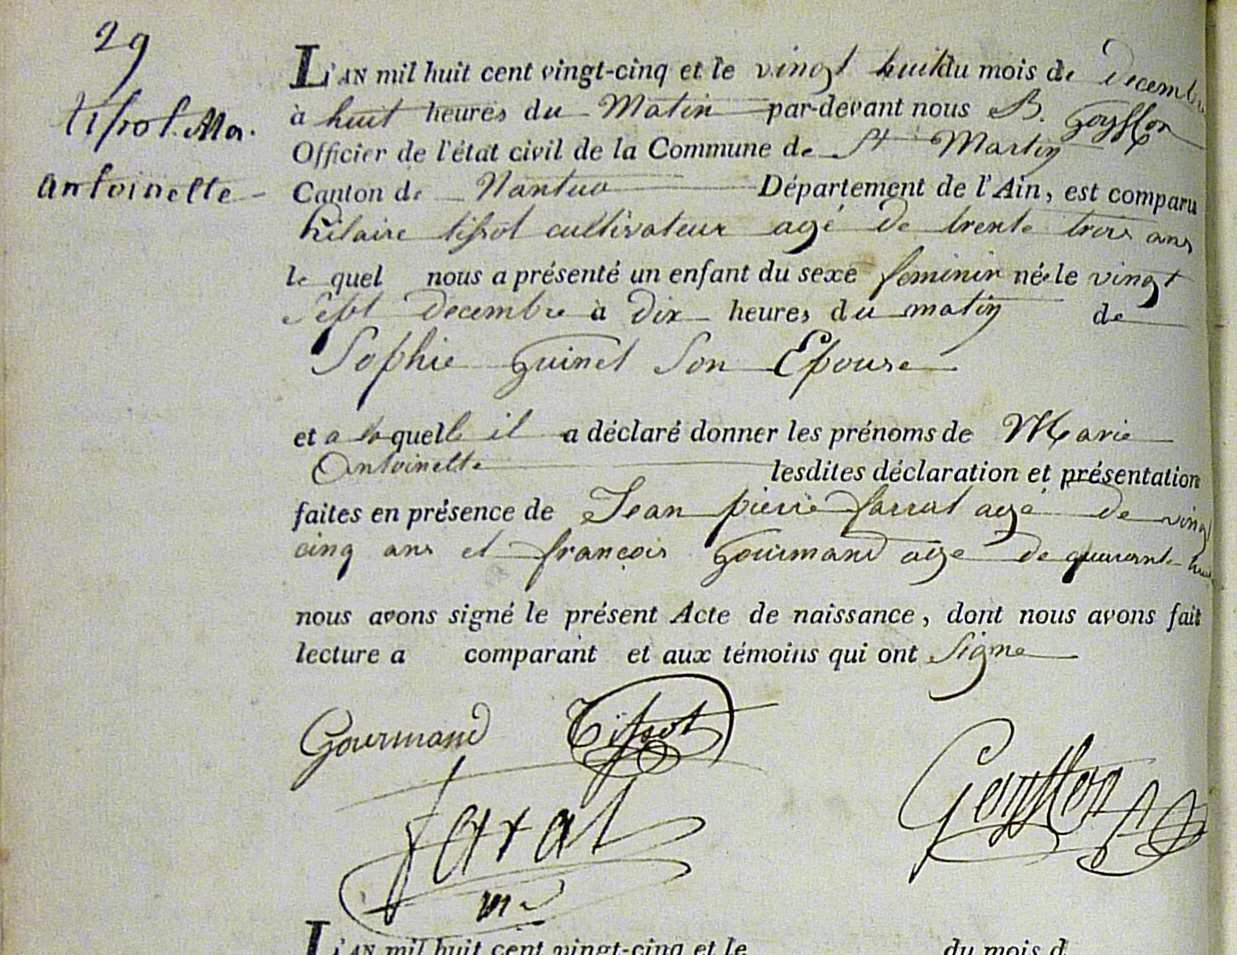 29
tissot Mar.
antoinette
L'AN mil huit cent vingt-cinq et le vingt huit du mois de Decembre
à huit heures du Matin par-devant nous B. Goyffon
Officier de l'état civil de la Commune de St Martin
Canton de Nantua Département de l'Ain, est comparu
hilaire tissot cultivateur agé de trente trois ans
le quel nous a présenté un enfant du sexe feminin née le vingt
Sept Decembre à dix heures du matin de
Sophie Guinet Son Epouse
et a laquelle il a déclaré donner les prénoms de Marie
Antoinette lesdites déclaration et présentation
faites en présence de Jean pierre farrat agé de vingt
cinq ans et françois Gourmand age de quarante huit
nous avons signé le présent Acte de naissance, dont nous avons fait
lecture a comparant et aux témoins qui ont Signe
Gourmand Tissot
Goyffon
farat
L'AN mil huit cent vingt-cinq et le du mois d